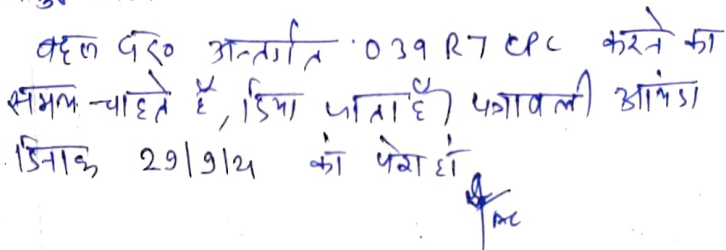 बहस प्रा० अन्तर्गत 039 R7 CPC करने का
समय चाहते हैं, दिया जाता है। पत्रावली आगंदा
दिनांक 29/9/21 को पेश हो